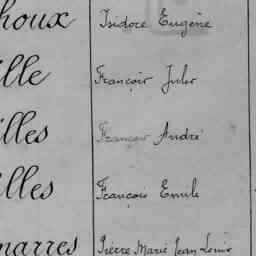 houx Isidore Eugène
lle François Jules
illes François André
illes François Emile
marres Pierre Marie Jean Louis